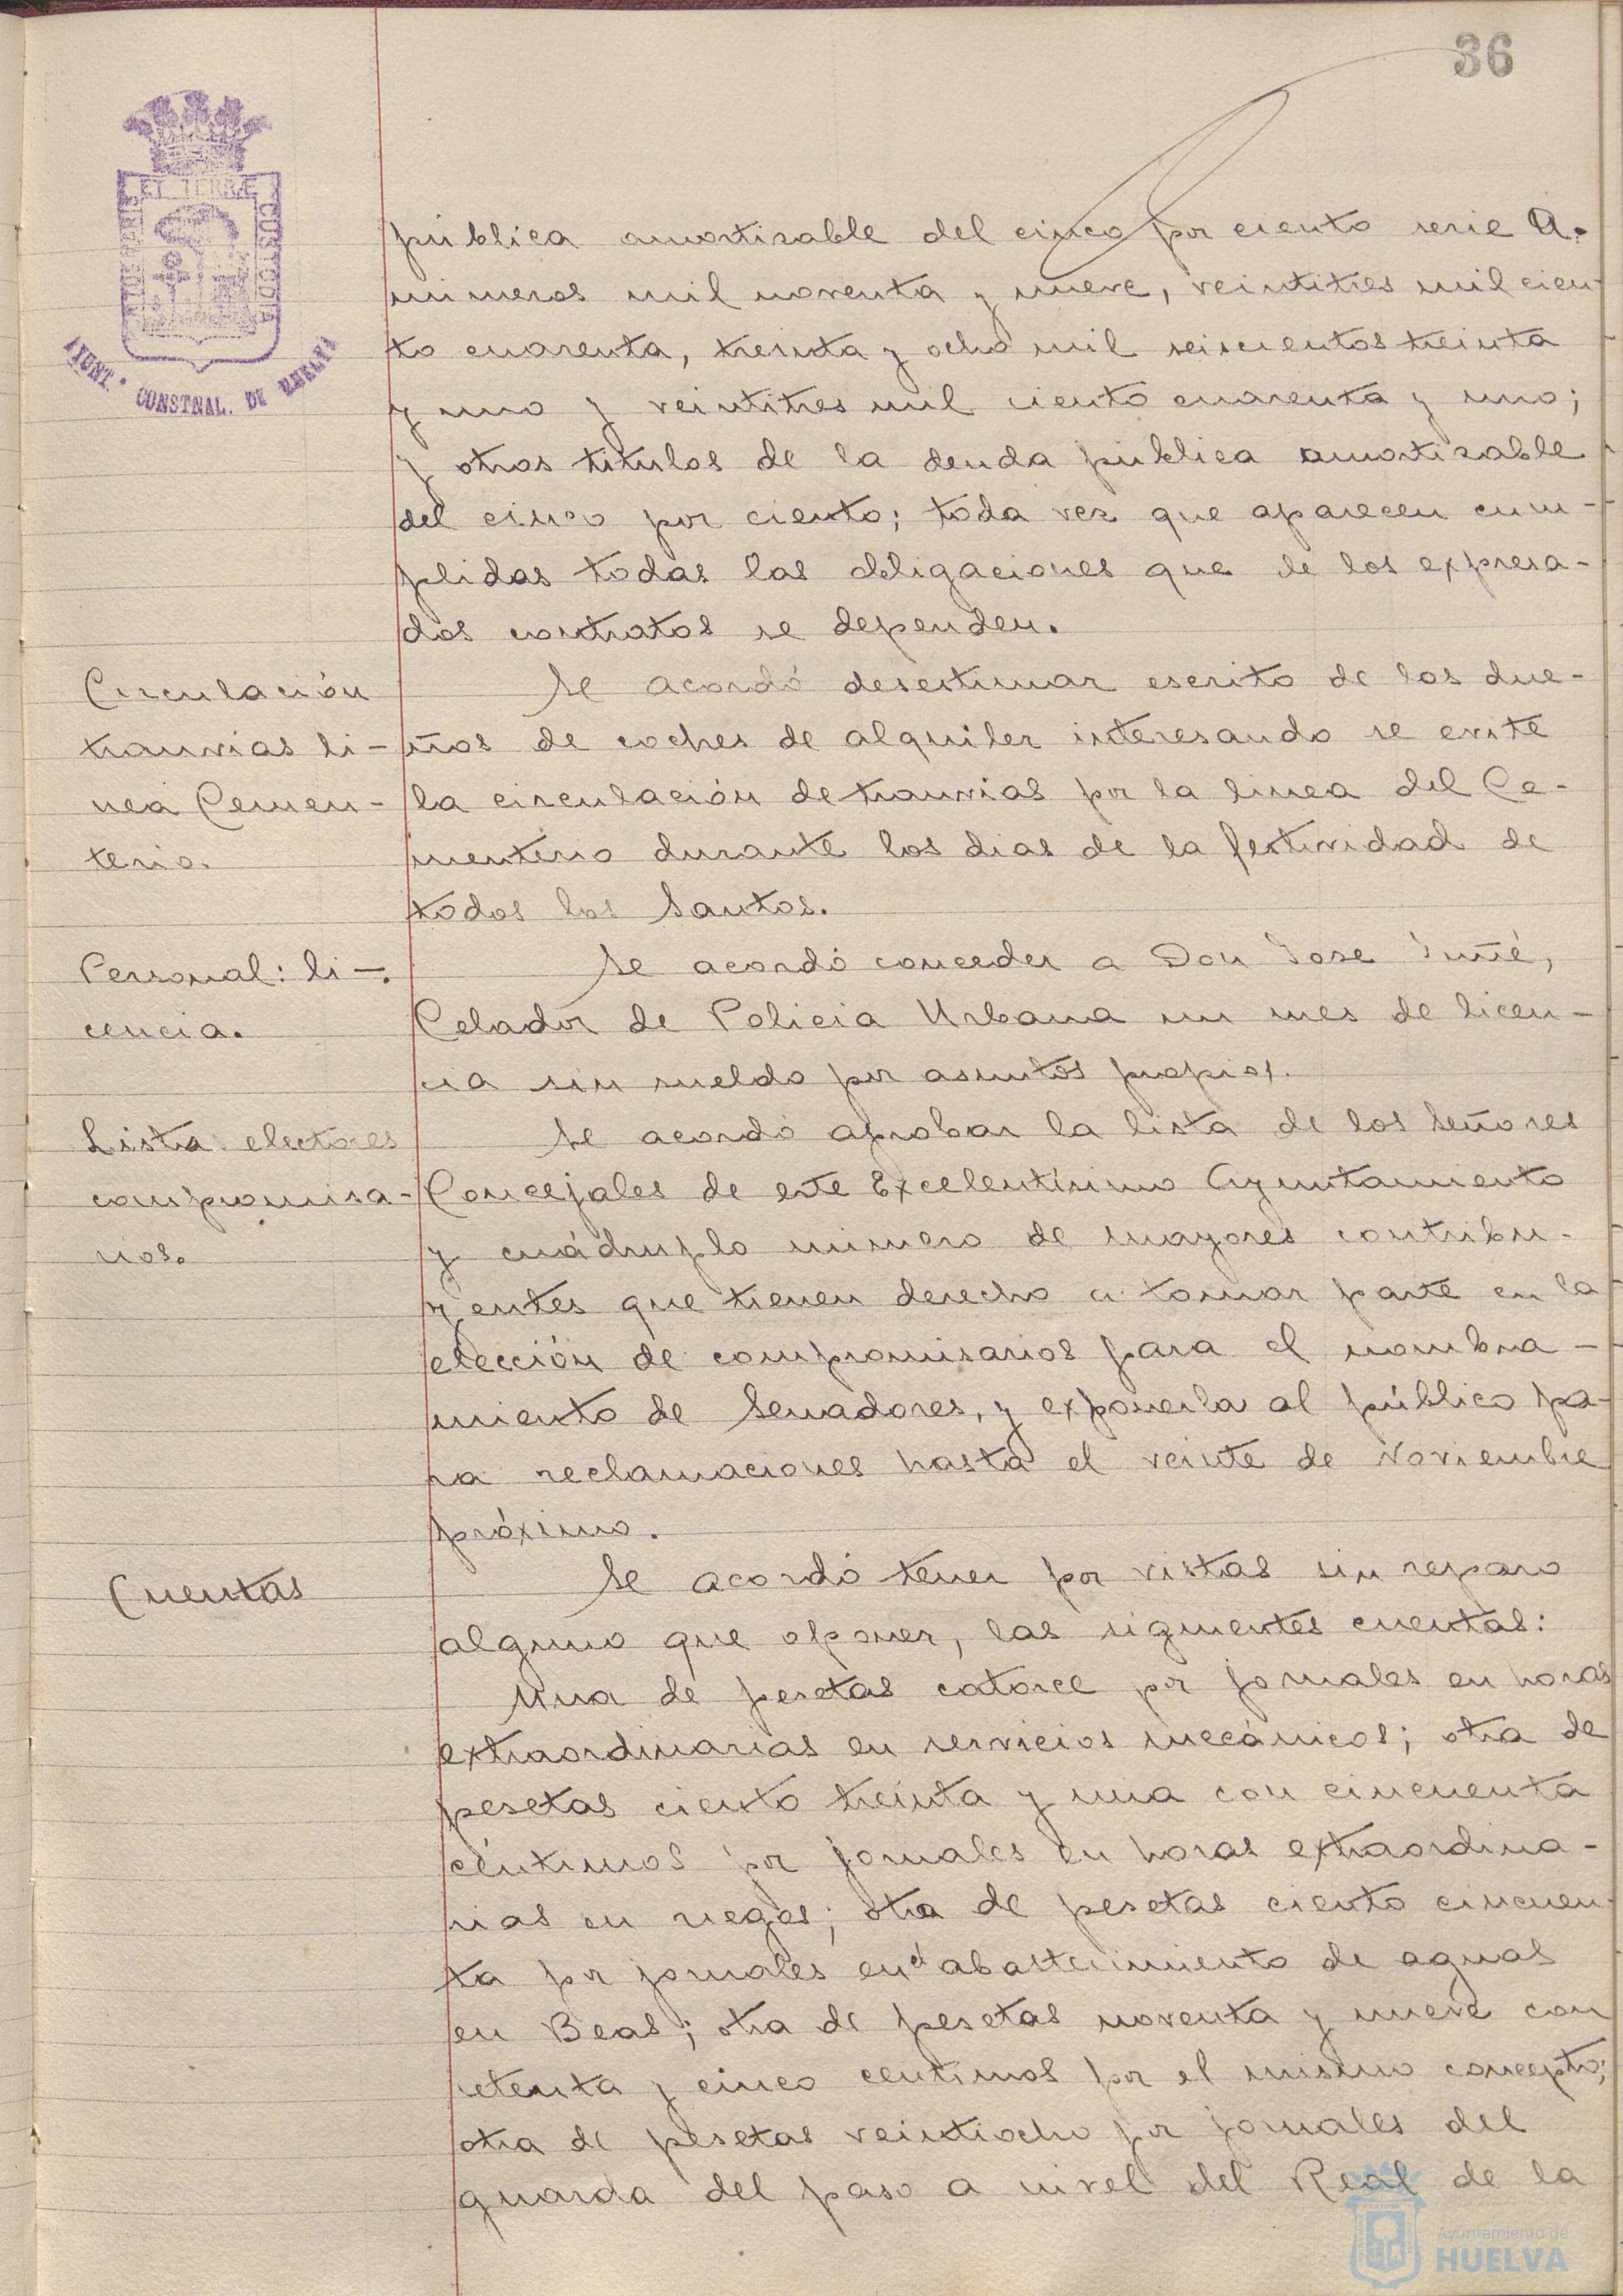 36
ET TERRÆ
CUSTODIA
AYUNT. CONSTNAL. DE HUELVA
pública amortizable del cinco por ciento serie A.
números mil noventa y nueve, veintitres mil cien-
to cuarenta, treinta y ocho mil seiscientos treinta
y uno y veintitres mil ciento cuarenta y uno;
y otros títulos de la deuda pública amortizable
del cinco por ciento; toda vez que aparecen cum-
plidas todas las obligaciones que de los expresa-
dos contratos se dependen.
Circulación
tranvias li-
nea Cemen-
terio.
Se acordó desestimar escrito de los due-
ños de coches de alquiler interesando se evite
la circulación de tranvias por la linea del Ce-
menterio durante los dias de la festividad de
todos los Santos.
Personal: li-.
cencia.
Se acordó conceder a Don Jose
Celador de Policia Urbana un mes de licen-
cia sin sueldo por asuntos propios.
Lista electores
compromisa-
rios.
Se acordó aprobar la lista de los Señores
Concejales de este Excelentísimo Ayuntamiento
y cuádruplo número de mayores contribu-
yentes que tienen derecho a tomar parte en la
elección de compromisarios para el nombra-
miento de Senadores, y exponerla al público pa-
ra reclamaciones hasta el veinte de Noviembre
próximo.
Cuentas
Se acordó tener por vistas sin reparo
alguno que oponer, las siguientes cuentas:
Una de pesetas catorce por jornales en horas
extraordinarias en servicios mecánicos; otra de
pesetas ciento treinta y una con cincuenta
céntimos por jornales en horas extraordina-
rias en riegos; otra de pesetas ciento cincuen-
ta por jornales en el abastecimiento de aguas
en Beas; otra de pesetas noventa y nueve con
setenta y cinco centimos por el mismo concepto;
otra de pesetas veintiocho por jornales del
guarda del paso a nivel del Real de la
Ayuntamiento de
HUELVA